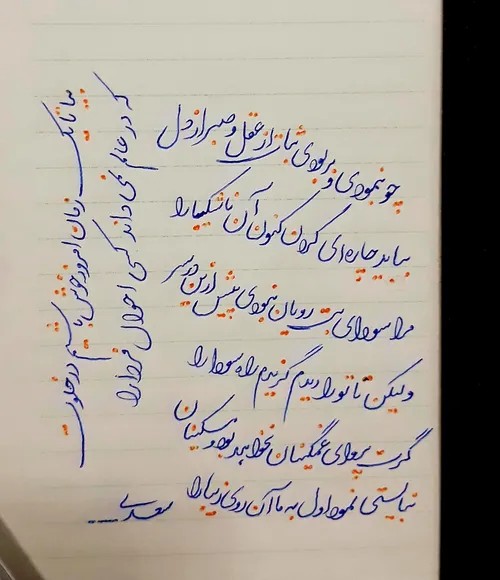 چو بنمودی و بربودی ثبات از عقل و صبر از دل
بباید چاره‌ای کردن کنون آن ناشکیبا را
مرا سودای بت رویان نبودی پیش ازین در سر
ولیکن تا تو را دیدم گزیدم راه سودا را
گرت پروای غمگینان نخواهد بود و مسکینان
نبایستی نمود اول به ما آن روی زیبا را
سعدی
بیا تا یک زمان امروز خوش باشیم در خلوت
که در عالم نمی داند کسی احوال فردا را